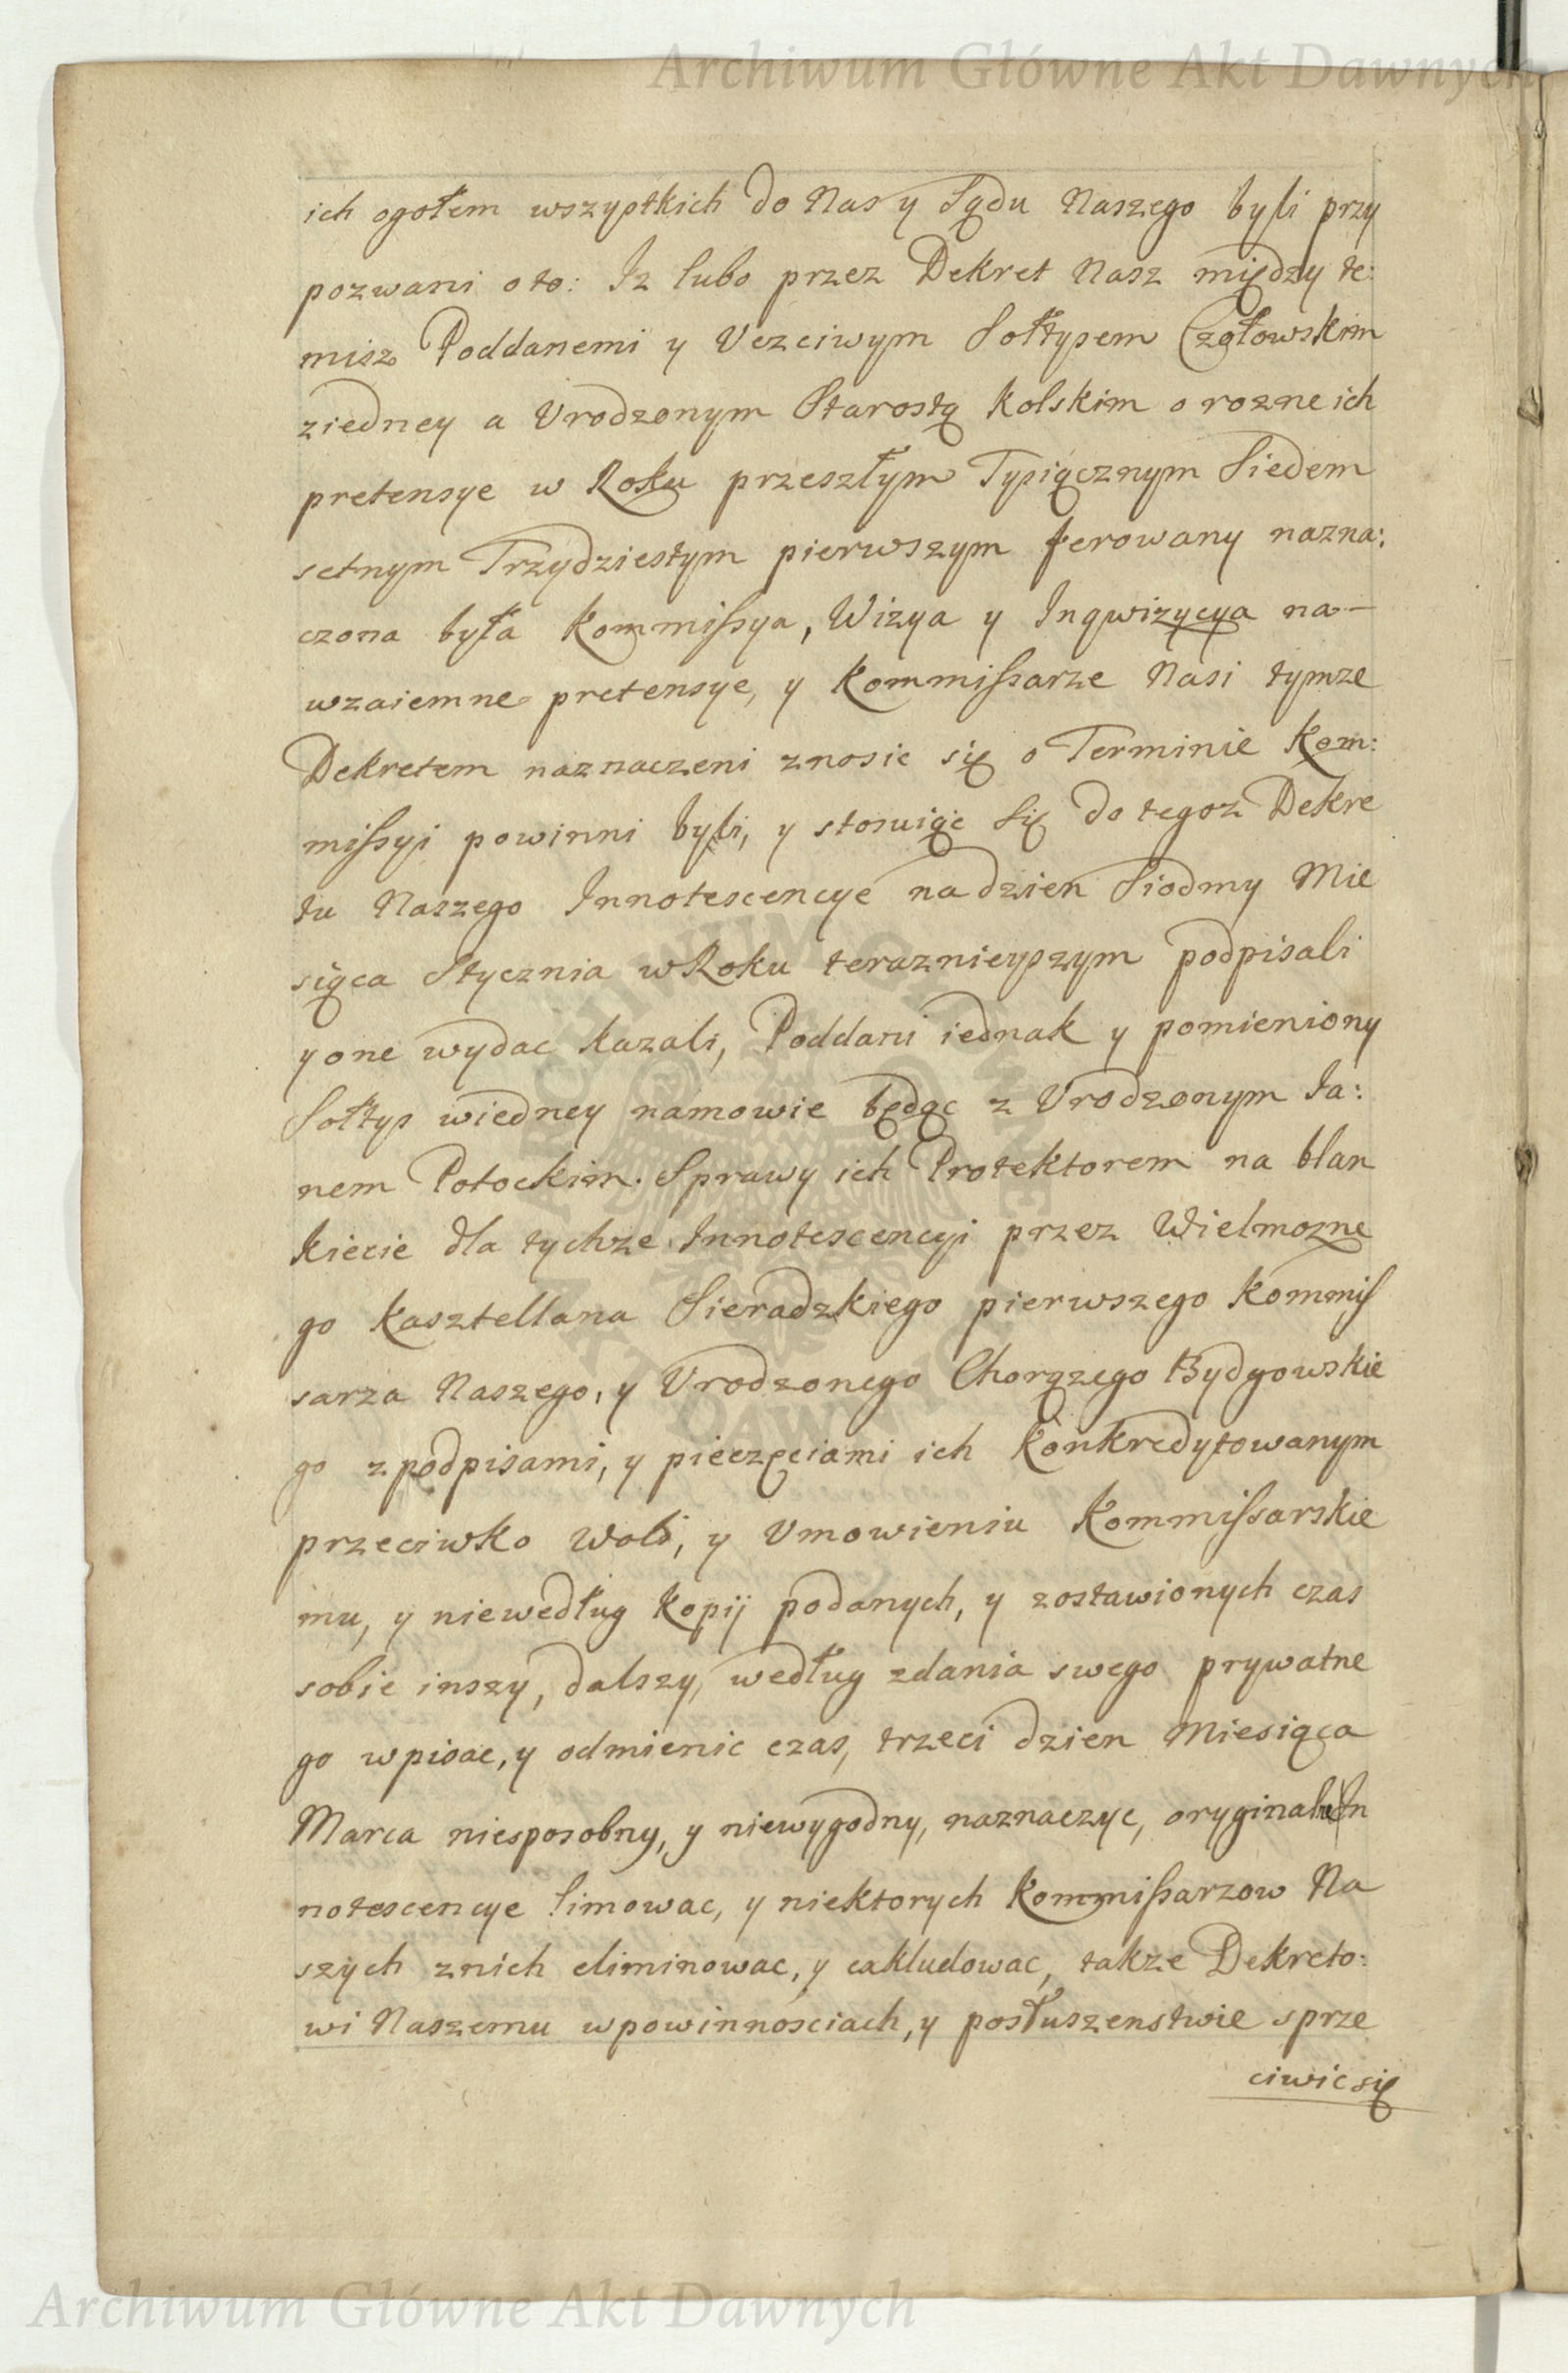 Archiwum Główne Akt Dawnych
ich ogołem wszystkich do Nas y Sądu Naszego byli przy
pozwani o to: Iz lubo przez Dekret Nasz między te:
misz Poddanemi y Vczciwym Sołtysem Czołowskim
ziedney a Vrodzonym Starostą Kolskim o rozne ich
pretensye w Roku przeszłym Tysiącznym Siedem
setnym Trzydziestym pierwszym ferowany nazna:
czona była Kommissya, Wizya y Inqwizycya na-
wzaiemne pretensye, y Kommissarze Nasi tymze
Dekretem naznaczeni znosic się o Terminie Kom:
missyi powinni byli, y stosuiąc Się do tegoz Dekre
tu Naszego Innotescencye na dzien Siodmy Mie
siąca Stycznia w Roku teraznieyszym podpisali
y one wydac kazali, Poddani iednak y pomieniony
Sołtys wiedney namowie będąc z Vrodzonym Ja:
nem Potockim. Sprawy ich Protektorem na blan
kiecie dla tychze Innotescencyi przez Wielmozne
go Kasztellana Sieradzkiego pierwszego Kommis
sarza Naszego, y Vrodzonego Chorązego Bydgowskie
go z podpisami, y pieczęciami ich Konkredytowanym
przeciwko Woli, y Vmowieniu Kommissarskie
mu, y niewedług Kopij podanych, y zostawionych czas
sobie inszy, dalszy, według zdania swego prywatne
go wpisac, y odmienic czas, trzeci dzien Miesiąca
Marca niesposobny, y niewygodny, naznaczyc, oryginalne In
notescencye limowac, y niektorych Kommissarzow Na
szych znich eliminowac, y exkludowac, takze Dekreto:
wi Naszemu wpowinnosciach, y posłuszenstwie sprze
ciwic się
Archiwum Główne Akt Dawnych